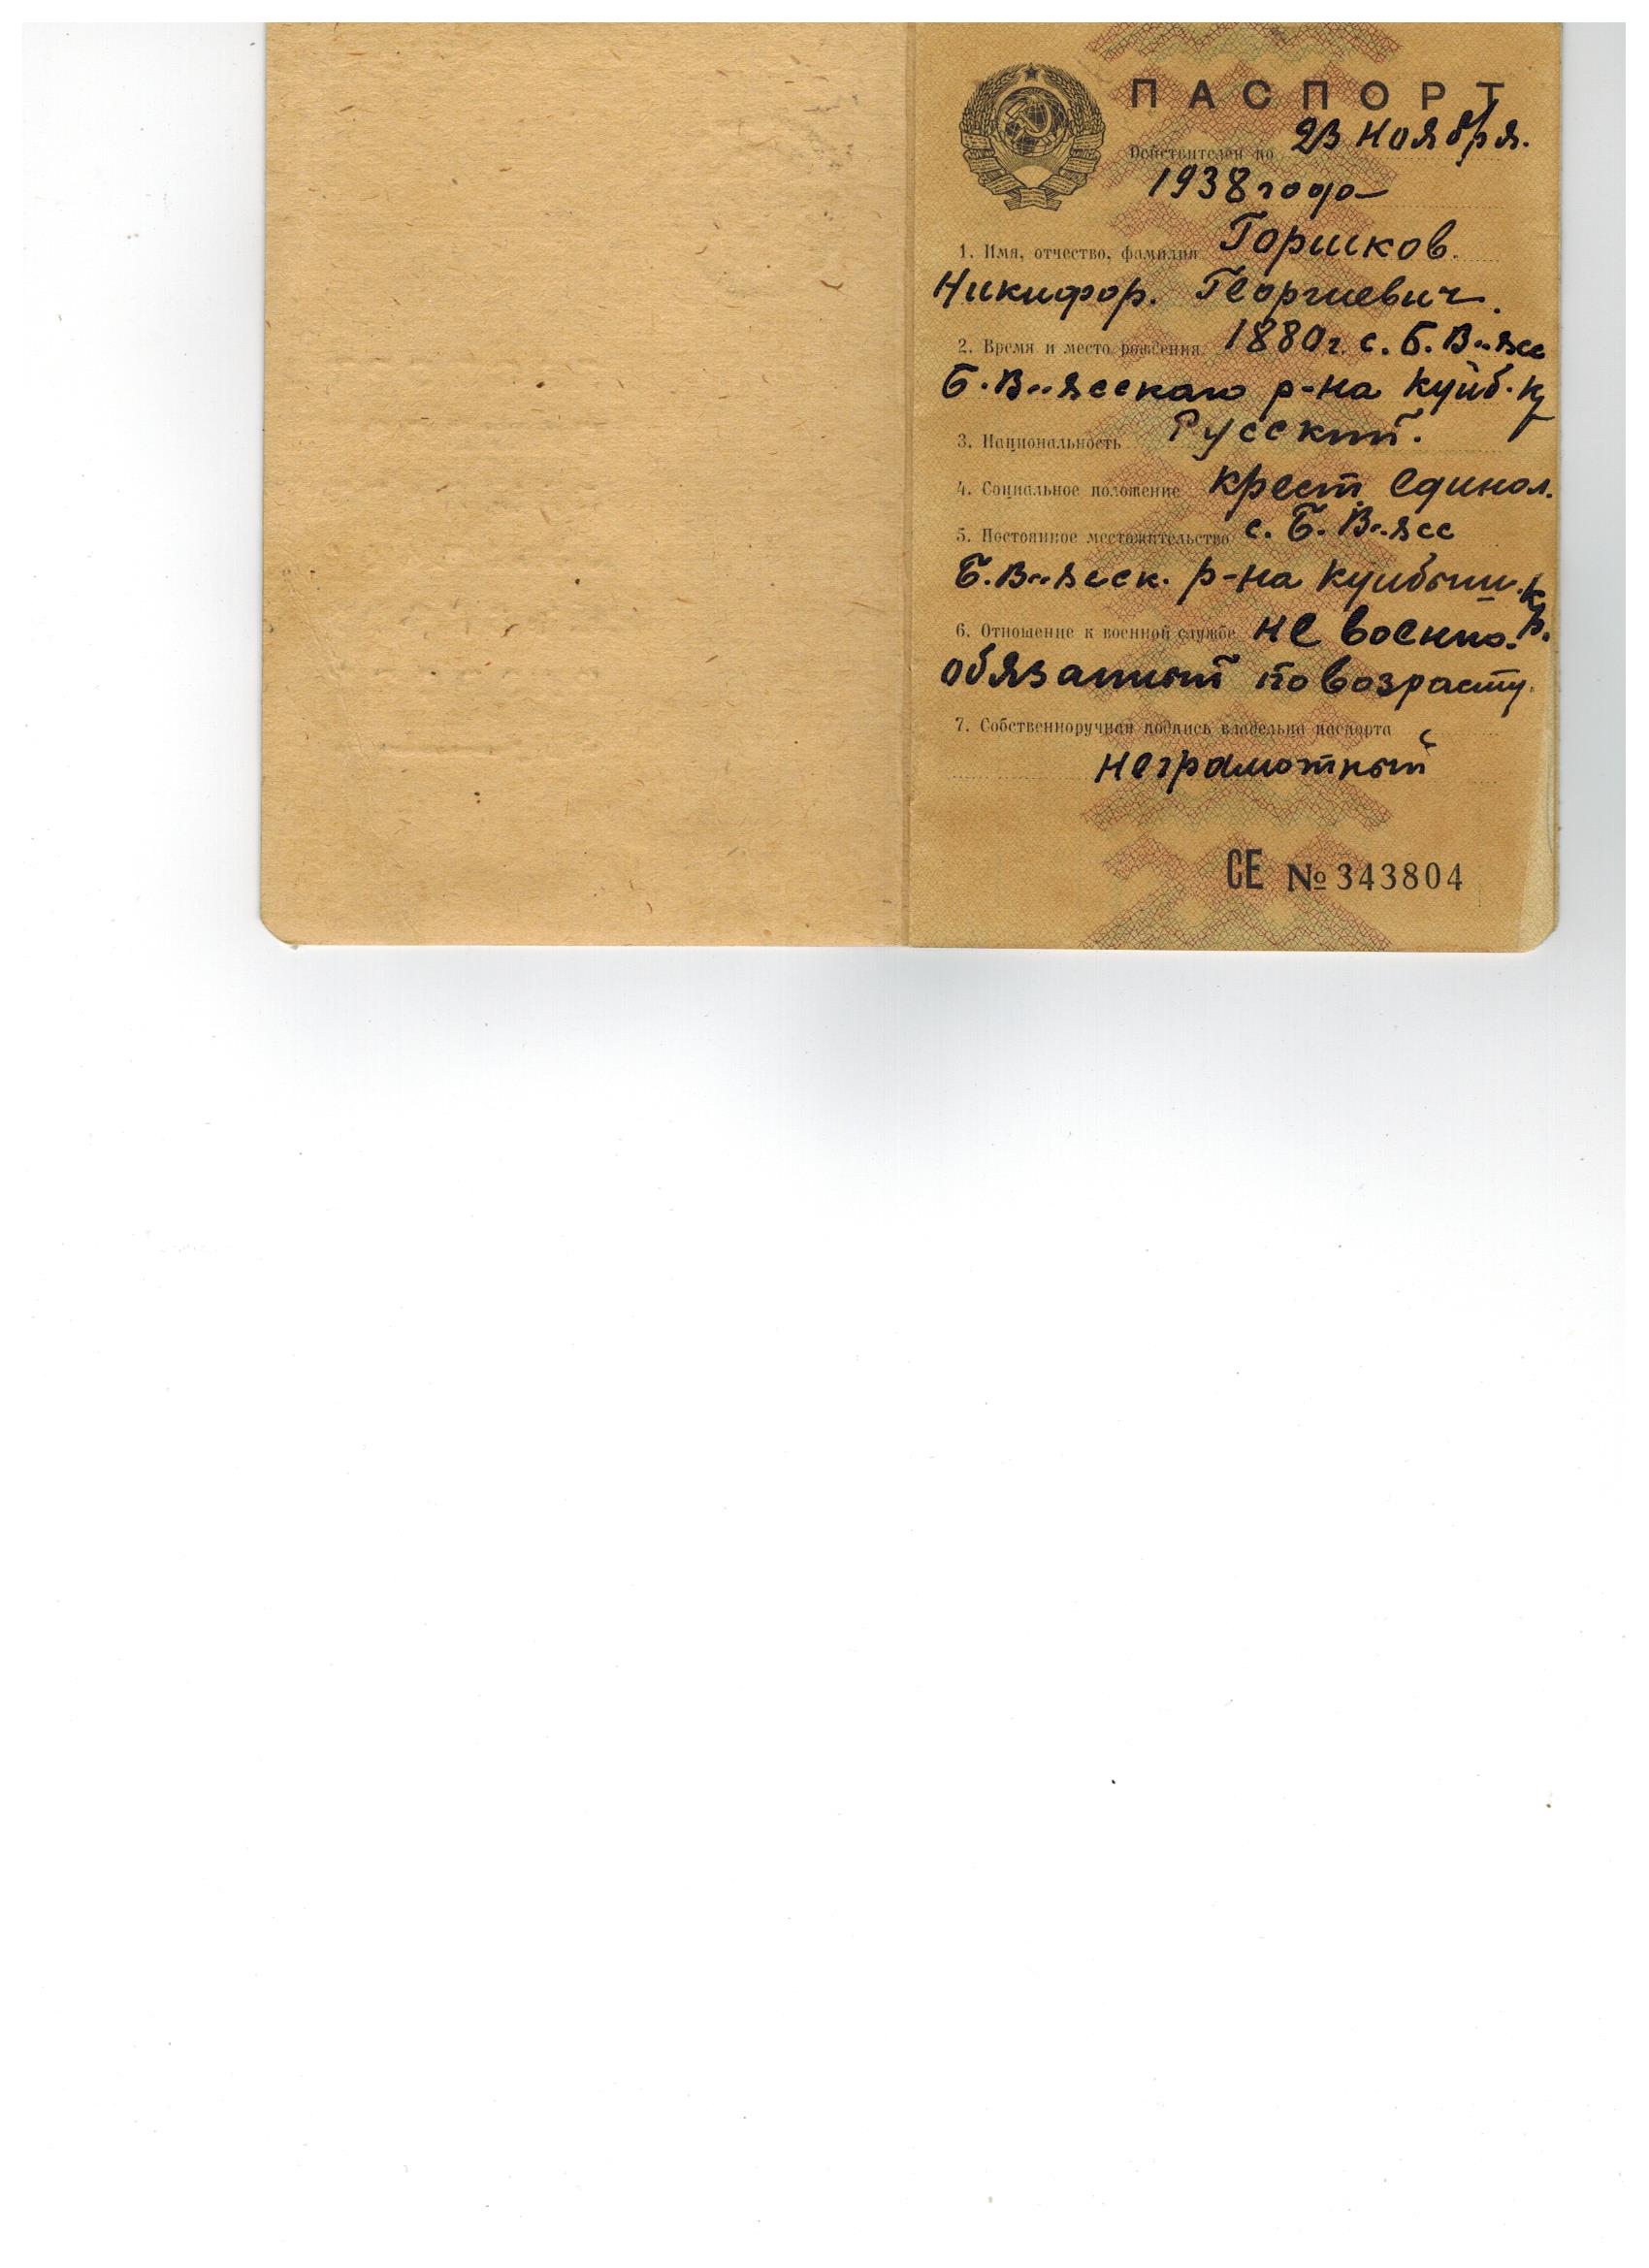 ПАСПОРТ
Действителен по 23 ноября.
1938 года
1. Имя, отчество, фамилия Горшков.
Никифор. Георгиевич.
2. Время и место рождения 1880 г. с. Б. Вьясс
Б. Вьясскаго р-на Куйб. к
3. Национальность Русский.
4. Социальное положение крест. единол.
5. Постоянное местожительство с. Б. Вьясс
Б. Вьясск. р-на Куйбыш. кр.
6. Отношение к военной службе не военно.
обязанный по возрасту.
7. Собственноручная подпись владельца паспорта
неграмотный
СЕ № 343804